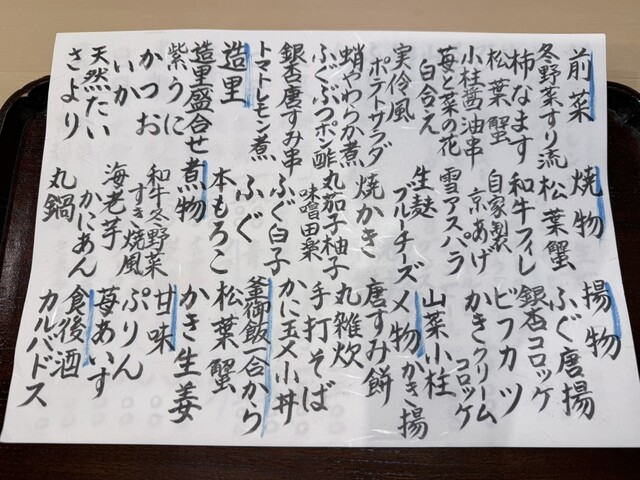 前菜
冬野菜すり流し
柿なます
松葉蟹
小柱醤油串
苺と菜の花
白合え
実伶風
ポテトサラダ
蛸やわらか煮
ふぐぶつポン酢
銀杏唐すみ串
トマトレモン煮
造里
造里盛合せ
紫うに
かつお
いか
天然たい
さより
焼物
松葉蟹
和牛フィレ
自家製
京あげ
雪アスパラ
生麩
ブルーチーズ
焼かき
丸茄子柚子
味噌田楽
ふぐ白子
ふぐ
本もろこ
煮物
和牛冬野菜
すき焼風
海老芋
かにあん
丸鍋
揚物
ふぐ唐揚
銀杏コロッケ
ビフカツ
かきクリーム
コロッケ
山菜小柱
かき揚
〆物
唐すみ餅
丸雑炊
手打そば
かに玉〆小丼
釜御飯一合から
松葉蟹
かき生姜
甘味
ぷりん
苺あいす
食後酒
カルバドス